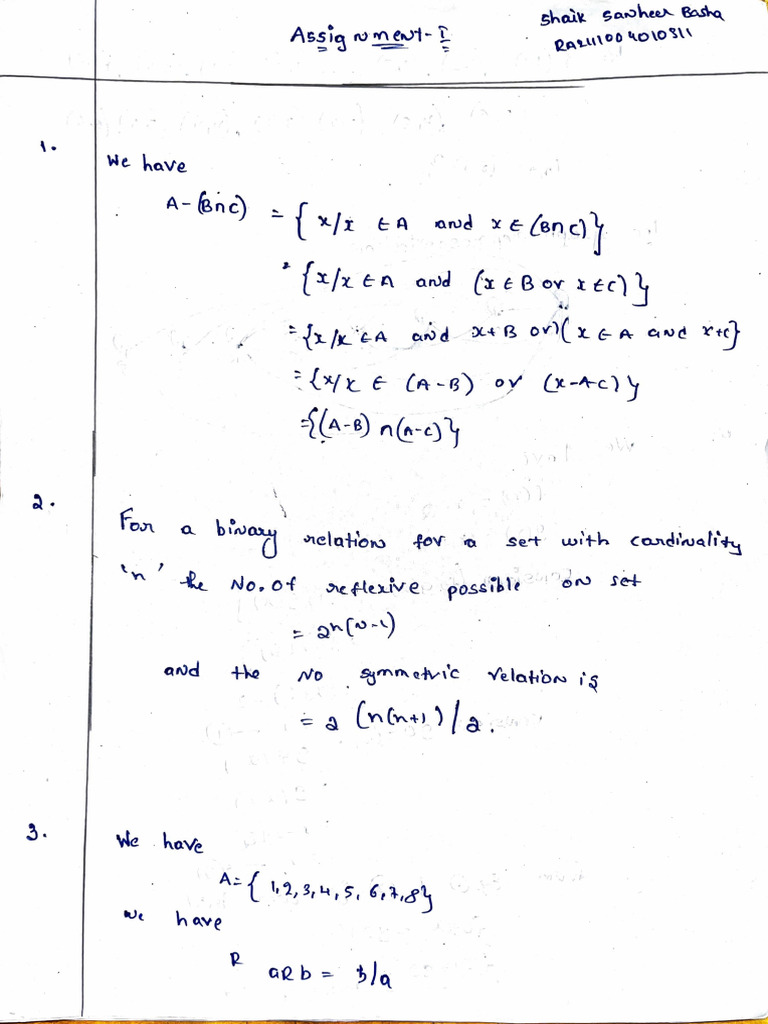 Assignment-I
Shaik Sanheer Basha
RA2111004010311
1.
We have
A-(B∩C) = {x/x ∈A and x∈(B∩C)}
= {x/x ∈A and (x∈B or x∈C)}
={x/x ∈A and x+B or)(x∈A and x+c}
={x/x ∈ (A-B) or (x-AC)}
={(A-B) ∩(A-C)}
2.
For a binary relation for a set with cardinality
'n' the No.of reflexive possible on set
= 2n(n-1)
and the No symmetric relation is
= 2 (n(n+1)/2.
3.
We have
A={1,2,3,4,5,6,7,8}
we have
R aRb = b/a